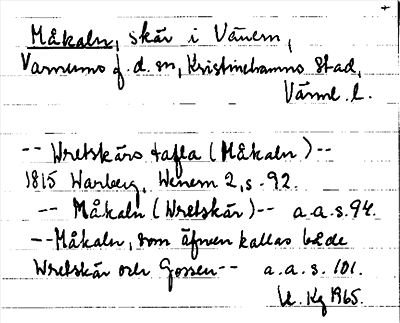 Måkaln, skär i Vänern,
Varnums f.d. sn, Kristinehamns stad,
Värml. l.
-- Wretskärs tafla (Måkaln) --
1815 Warberg, Wenern 2, s. 92.
-- Måkaln (Wretskär) -- a.a.s. 94.
-- Måkaln, som äfven kallas både
Wretskär och Gossen -- a.a.s. 101.
Kg 1965.